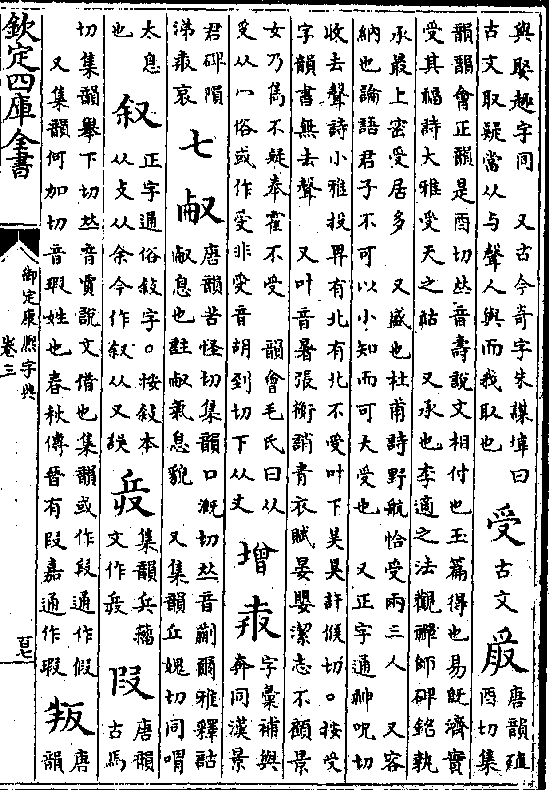 與娶趣字同　又古今奇字朱謀㙔曰
古文取疑當从与聲人與而我取也
受
古文
唐韻殖
酉切集
韻韻會正韻是酉切𠀤音壽說文相付也玉篇得也易旣濟實
受其福詩大雅受天之祜　又承也李適之法觀禪師碑銘執
承最上密受居多　又盛也杜甫詩野航恰受兩三人　又容
納也論語君子不可以小知而可大受也　又正字通神呪切
收去聲詩小雅投畀有北有北不受叶下昊昊許候切○按受
字韻書無去聲　又叶音暑張衡誚青衣賦晏嬰潔志不顧景
女乃雋不疑奉霍不受　韻會毛氏曰从
受从冖俗或作受非受音胡到切下从丈
增
字彙補與
奔同漢景
君碑隕
涕哀
七
㕟
唐韻苦怪切集韻口漑切𠀤音蒯爾雅釋詁
㕟息也註㕟氣息貌　又集韻丘媿切同喟
太息
也
叙
正字通俗敘字○按敘本
从攴从余今作叙从又誤
集韻兵籀
文作
叚
唐韻
古馬
切集韻舉下切𠀤音賈說文借也集韻或作叚通作假
又集韻何加切音瑕姓也春秋傳晉有叚嘉通作瑕
叛
唐
韻
欽定四庫全書
御定康熙字典
卷三
百七